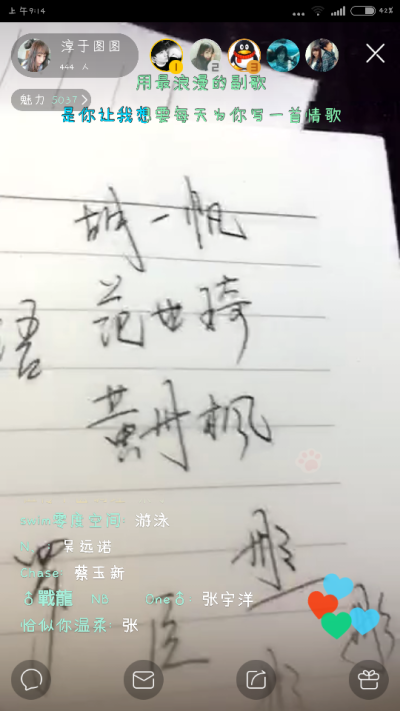 上午 9:14
42%
淳于图图
444 人
2
3
魅力 5037 >
用最浪漫的副歌
是你让我想要每天为你写一首情歌
胡一帆
范世琦
语
黄丹枫
swim零度空间: 游泳
吴远诺
Chase: 蔡玉新
戰龍 No One 张宇洋
恰似你温柔: 张
彤